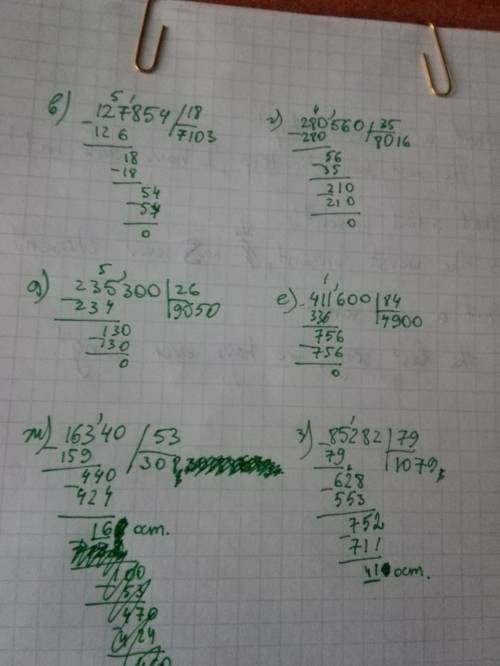 в) 127854 | 18
- 126 7103
18
- 18
54
- 54
0
г) 280560 | 35
- 280 8016
56
- 35
210
- 210
0
д) 235300 | 26
- 234 9050
130
- 130
0
е) 411600 | 84
- 336 4900
756
- 756
0
ж) 16340 | 53
- 159 308
440
- 424
16 ост.
з) 85282 | 79
- 79 1079
628
- 553
752
- 711
41 ост.